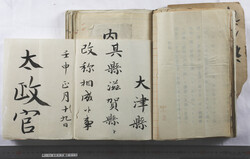 大津縣
内
其縣滋賀縣ト
改称相成候事
壬申正月十九日
太政官